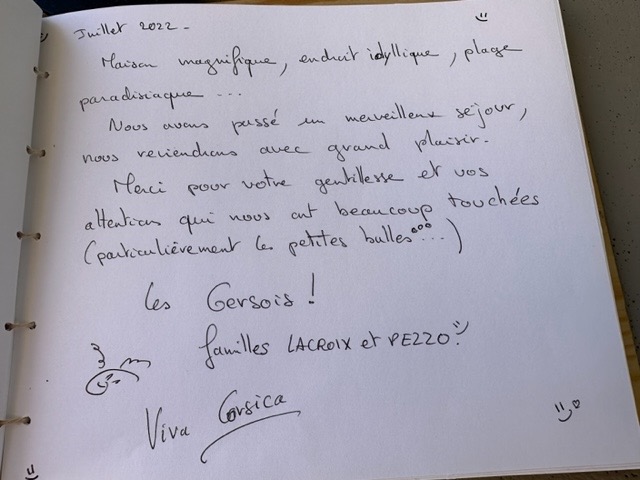 Juillet 2022 -
Maison magnifique, endroit idyllique, plage
paradisiaque ...
Nous avons passé un merveilleux séjour,
nous reviendrons avec grand plaisir.
Merci pour votre gentillesse et vos
attentions qui nous ont beaucoup touchées
(particulièrement les petites bulles...)
Les Gersois !
familles LACROIX et PEZZO
Viva Corsica